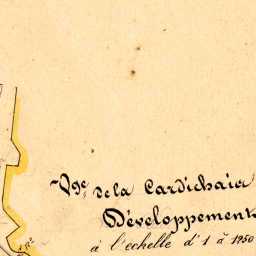 Vge de la Cardichaia
Développement
à l'echelle d'1 à 1250